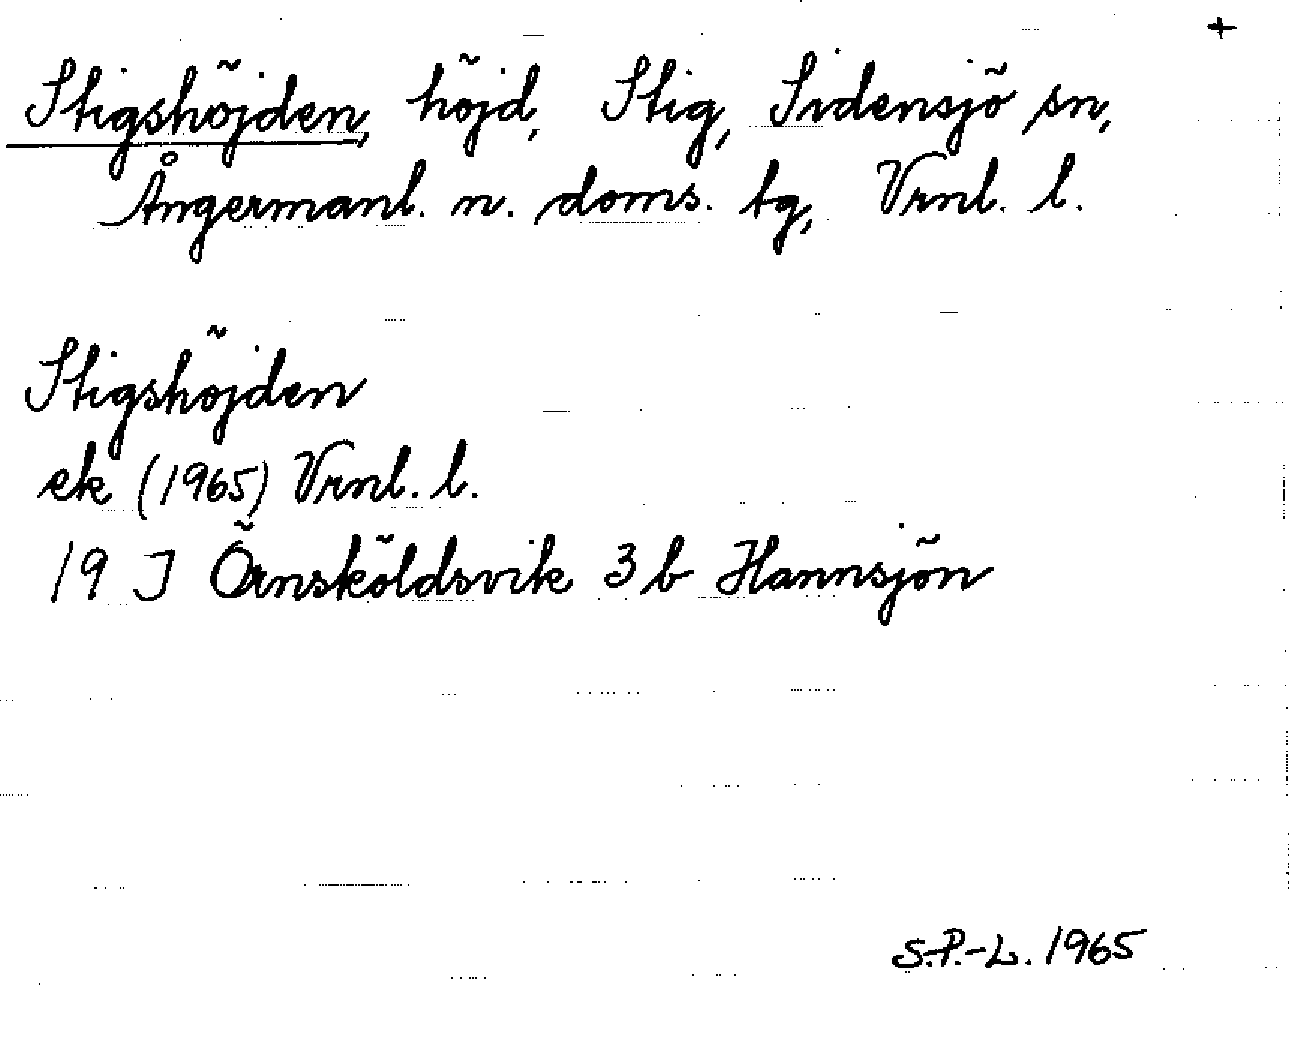 +
Stigshöjden, höjd, Stig, Sidensjö sn,
Ångermanl. n. doms. tg, Vrnl. l.
Stigshöjden
ek (1965) Vrnl. l.
19 J Örnsköldsvik 3 b Hannsjön
S.P.-L. 1965